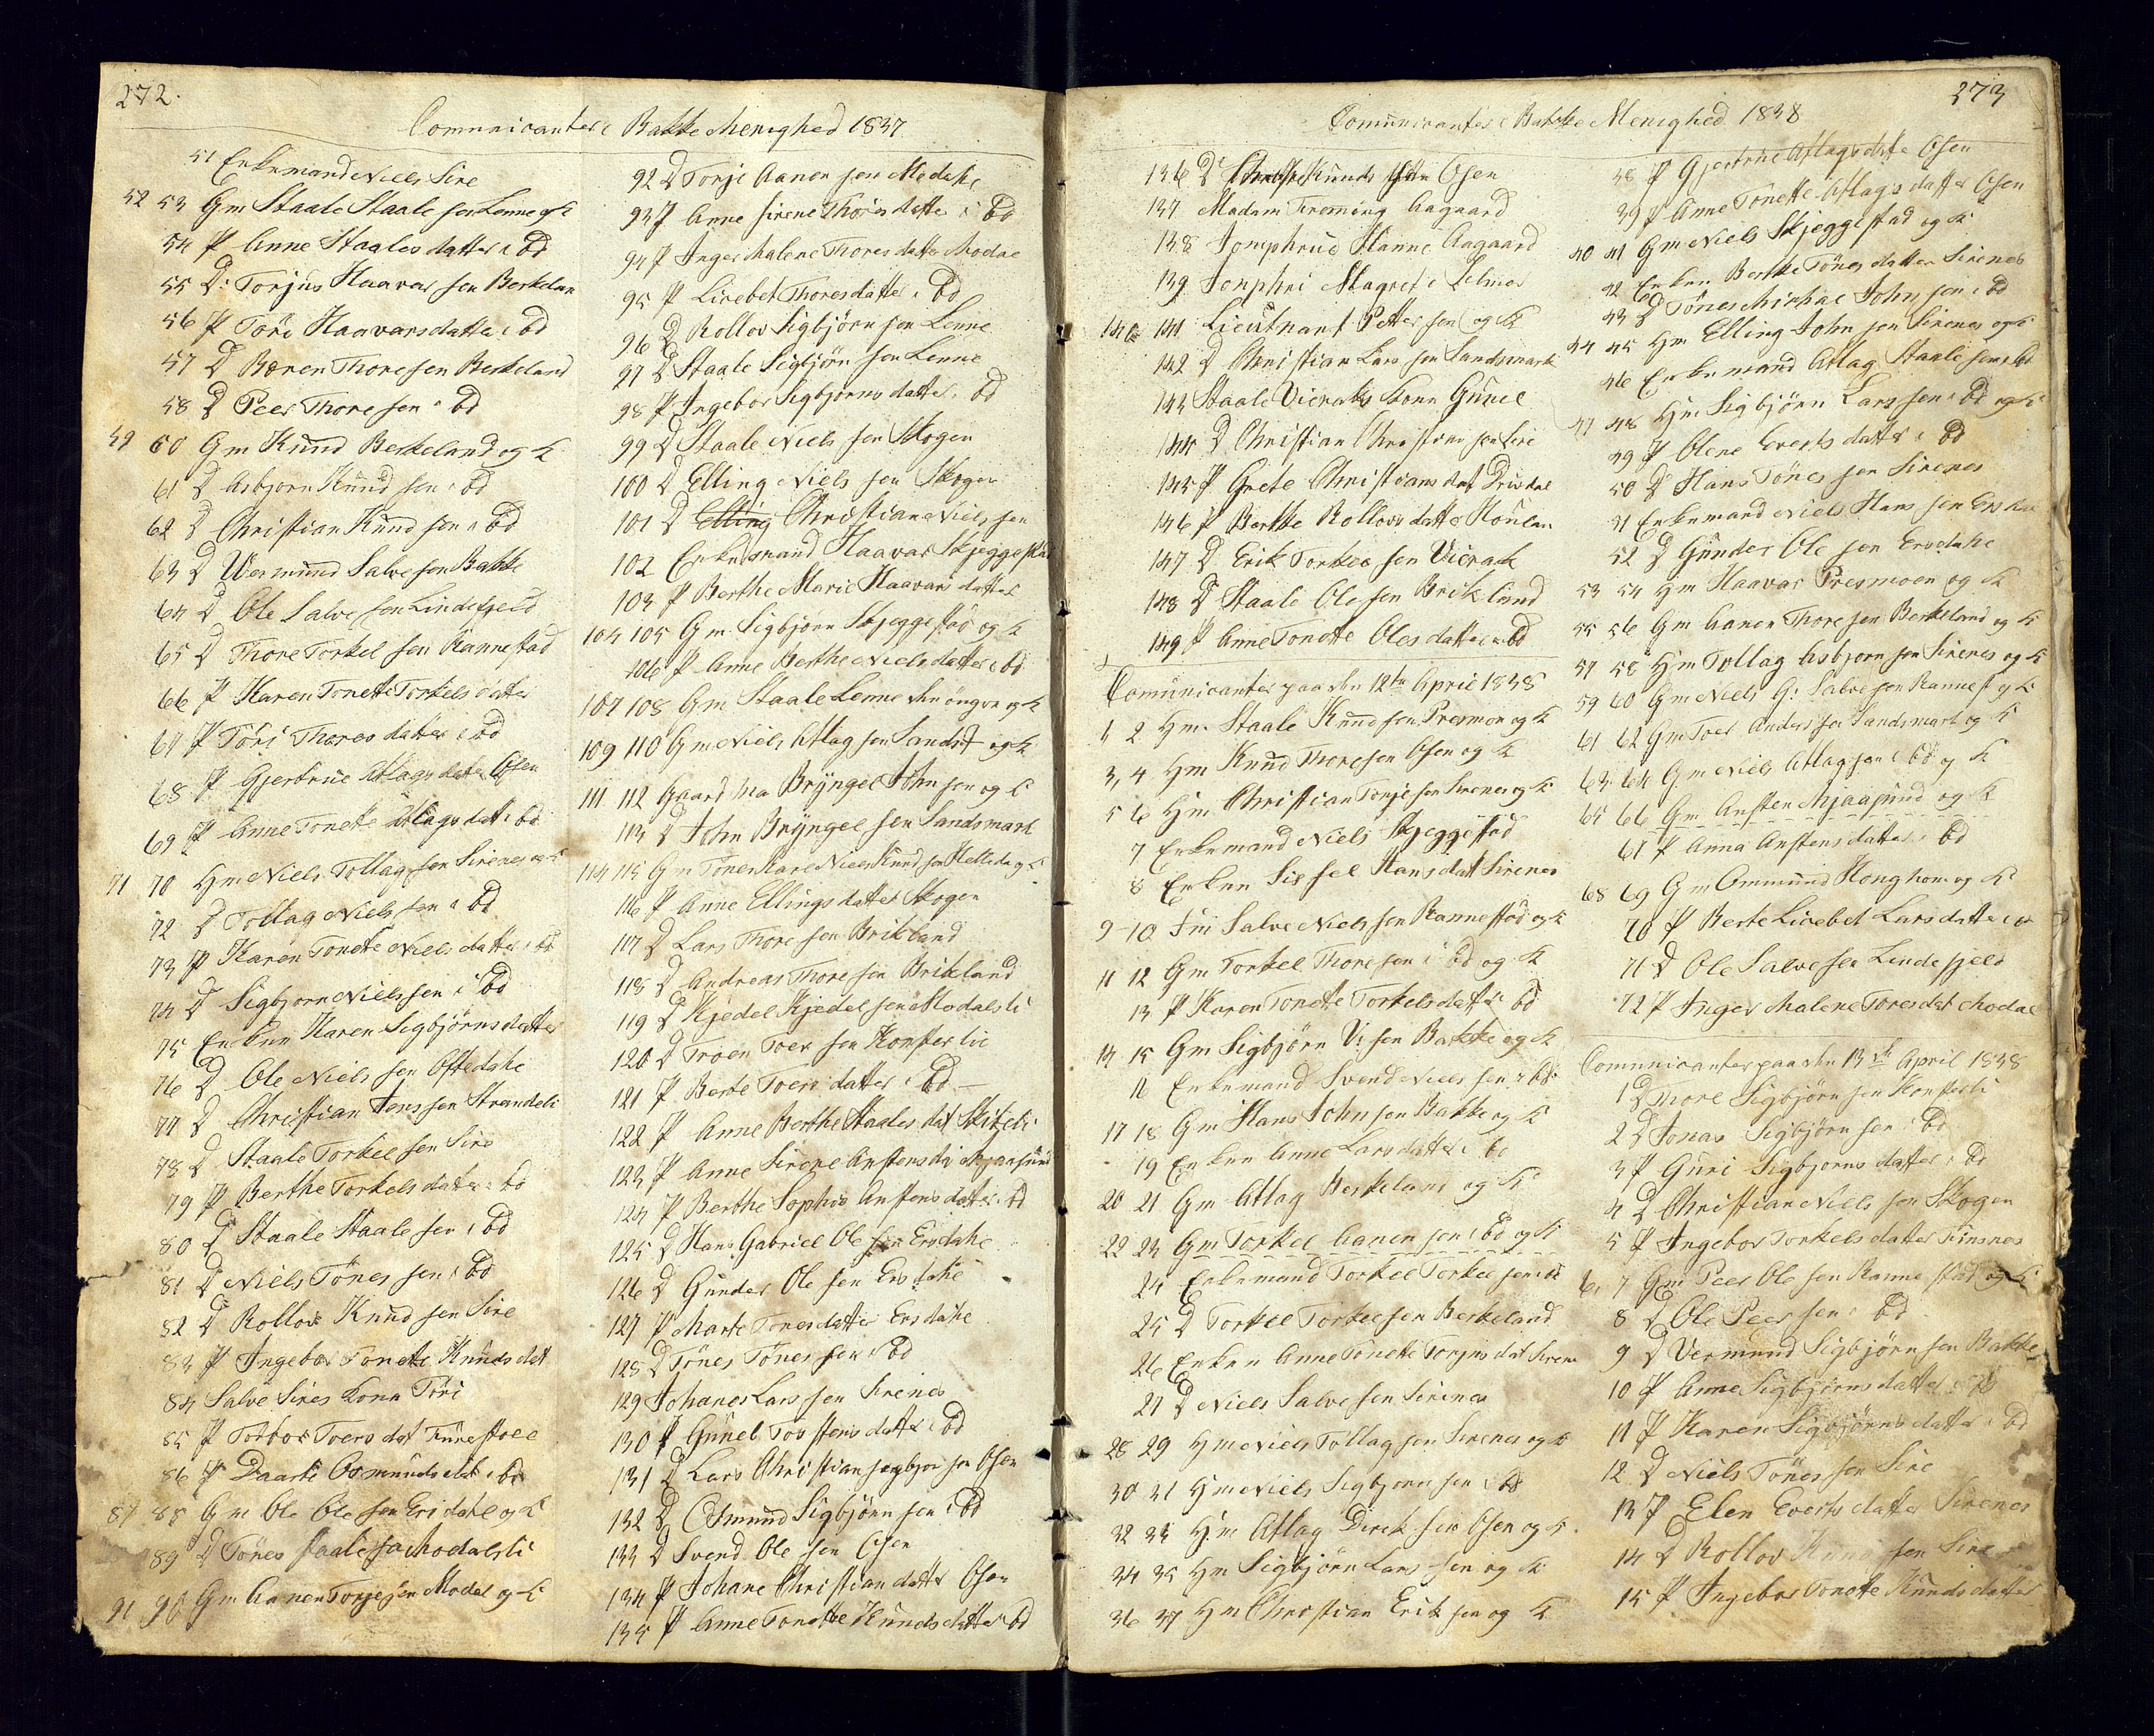 272.
Communicanter i Bakke Menighed 1837.
51 Enkemand Niels Sire
52 53 Gm Staale Staale sen Lenne og K
54 P Anne Staales datter i bd
55 D: Torjus Haavar sen Berkelan
56 P Töri Haavarsdatter i bd
57 D Bæren Thoresen Berkeland
58 D Peer Thore sen i bd
59 60 Gm Knud Berkeland og K
61 D Asbjorn Knud sen i bd
62 D Christian Knud sen i bd
63 D Wermund Salve sen Bakke
64 D Ole Salve sen Lindefjeld
65 D Thore Torkel sen Rannestad
66 P Karen Tonete Torkelsdatter
67 P Töri Thores datter i bd
68 P Gjertrue Atlags datter Osen
69 P Anne Tonete Atlags dat i bd
71 70 Hm Niels Tollag sen Sirenes og K
72 D Tollag Niels sen i bd
73 P Karen Tonete Niels datter i bd
74 D Sigbjorn Niels sen i bd
75 Enken Karen Sigbjörnsdatter
76 D Ole Niels sen Oftedahe
77 D Christian Jens sen Strandeli
78 D Staale Torkel sen Sire
79 P Berthe Torkels datter i bd
80 D Staale Staale sen i bd
81 D Niels Tönes sen i bd
82 D Rollov Knud sen Sire
83 P Ingebor Tonete Knuds dat
84 Salve Sires Kone Töri
85 P Torbor Toers dat
86 P Daarte Osmunds dat i bd
87 88 Gm Ole Ole sen Ersdahl og K
89 D Tönes Staale sen Modalsli
91 90 Gm Aanen Torje sen Modal og K
92 D Torje Aanen sen Modahe
93 P Anne Sirene Thores datter i bd
94 P Inger Malene Thores datter Modal
95 P Lisebet Thoresdatter i bd
96 D Rollov Sigbjörn sen Lenne
97 D Staale Sigbjörn sen Lenne
98 P Ingebor Sigbjørns datter i bd
99 D Staale Niels sen Skogen
100 D Elling Niels sen Skogen
101 D Elling Christian Niels sen
102 Enkemand Haavar Skjeggestad
103 P Berthe Marie Haavars datter
104 105 Gm Sigbjorn Skjeggestad og K
106 P Anne Berthe Niels datter i bd
107 108 Gm Staale Lenne den öngre og K
109 110 Gm Niels Atlag sen Sandsm og K
111 112 Gaard ma Bryngel John sen og K
113 D John Bryngel sen Sandsmark
114 115 Gm Tönes Kare Niels Knud sen og K
116 P Anne Ellings datter Skogen
117 D Lars Thore sen Brikland
118 D Andreas Thore sen Brikland
119 D Kjedel Kjedel sen Modalsli
120 D Troen Toer sen Konsterlie
121 P Berte Toers datter i bd
122 P Anne Berthe Staales dat
123 P Anne Sirene Anstens da Mjaasund
124 P Berthe Sophie Anstens datter i bd
125 D Hans Gabriel Ole sen Ersdahe
126 D Gunder Ole sen Ersdahe
127 P Marte Tonesdatter Ersdahe
128 D Tönes Tönes sen i bd
129 Johanes Lars sen Sirenes
130 P Gunel Tostens datter i bd
131 D Lars Christian Segbjor sen Osen
132 D Osmund Sigbjörn sen i bd
133 D Svend Ole sen Osen
134 P Johane Christian datter Osen
135 P Anne Tonette Knuds datter i bd
273
Communicanter i Bakke Menighed 1838
136 D Knuds Osen
137 Madam Aagaard
138 Jomphrue Hanne Aagaard
139 Jomphrü Magrete
140 141 Lieutnant Petter sen og K
142 D Christian Lars sen Sandsmark
143 Staale Vieraks Kone Gunel
144 D Christian Christian sen Sire
145 P Grete Christians dat Drivdal
146 P Berthe Rollovs datter Houlan
147 D Erik Torkel sen Vierak
148 D Staale Ole sen Brikland
149 P Anne Tonette Oles datter i bd
Comunicanter paa den 12te April 1838
1 2 Hm. Staale Knud sen Presmon og K
3, 4 Hm Knud Thoresen Osen og K
5 6 Hm Christian Torje sen Sirenes og K
7 Enkemand Niels Skjeggestad
8 Enken Sissel Hans dat Sirenes
9 10 Gm Salve Niels sen Rannestad og K
11 12 Gm Torkel Thore sen i bd og K
13 P Karen Tonette Torkels datter i bd
14 15 Gm Sigbjörn V: sen Bakke og K
16 Enkemand Svend Niels sen i bd
17 18 Gm Hans John sen Bakke og K
19 Enken Anne Lars datter i bd
20 21 Gm Atlag Berkeland og K
22 23 Gm Torkel Aanen sen i bd og K
24 Enkemand Torkel Torkel sen i bd
25 D Torkel Torkel sen Berkeland
26 Enken Anne Tonette Torjus dat Sirene
27 D Niels Salve sen Sirenes
28 29 Hm Niels Tollag sen Sirenes og K
30 31 Hm Niels Sigbjorn sen i bd
32 33 Hm Atlag Derek sen Osen og K
34 35 Hm Sigbjörn Lars sen og K
36 37 Hm Christian Erik sen og K
38 P Gjertrue Atlags datte Osen
39 P Anne Tonette Atlags datter Osen
40 41 Gm Niels Skjeggestad og K
42 Enken Berthe Tönes datter Sirenes
43 D Tönes Michal John sen i bd
44 45 Hm Elling John sen Sirenes og K
46 Enkemand Atlag Staale sen i bd
47 48 Hm Sigbjörn Lars sen i bd og K
49 P Olene Everts datter i bd
50 D Hans Tönes sen Sirenes
51 Enkemand Niels Hans sen
52 D Gunder Ole sen Ersdahe
53 54 Hm Haavar Presmoen og K
55 56 Gm Aanen Thore sen Berkeland og K
57 58 Hm Tollag Asbjorn sen Sirenes og K
59 60 Gm Niels G: Salve sen Rannest og K
61 62 Gm Toer Anders sen Sandsmark og K
63 64 Gm Niels Atlag sen i bd og K
65 66 Gm Ansten Mjaasund og K
67 P Anna Anstens datter i bd
68 69 Gm Ommund Honghom og K
70 P Berte Lisebet Lars datter i bd
71 D Ole Salve sen Lindefjeld
72 P Inger Malene Tores dat Modal
Communicanter paa den 13de April 1838
1 D Thore Sigbjörn sen Konsterli
2 D Jonas Sigbjörn sen i bd
3 P Guri Sigbjorns datter i bd
4 D Christian Niels sen Skogen
5 P Ingebor Torkels datter
6, 7 Gm Peer Ole sen Rannestad og K
8 D Ole Peer sen i bd
9 D Vermund Sigbjörn sen Bakke
10 P Anne Sigbjörns datter i bd
11 P Karen Sigbjörns datter i bd
12 D Niels Tönes sen Sire
13 P Elen Everts datter Sirenes
14 D Rollov Knud sen Sire
15 P Ingebor Tonette Knuds datter